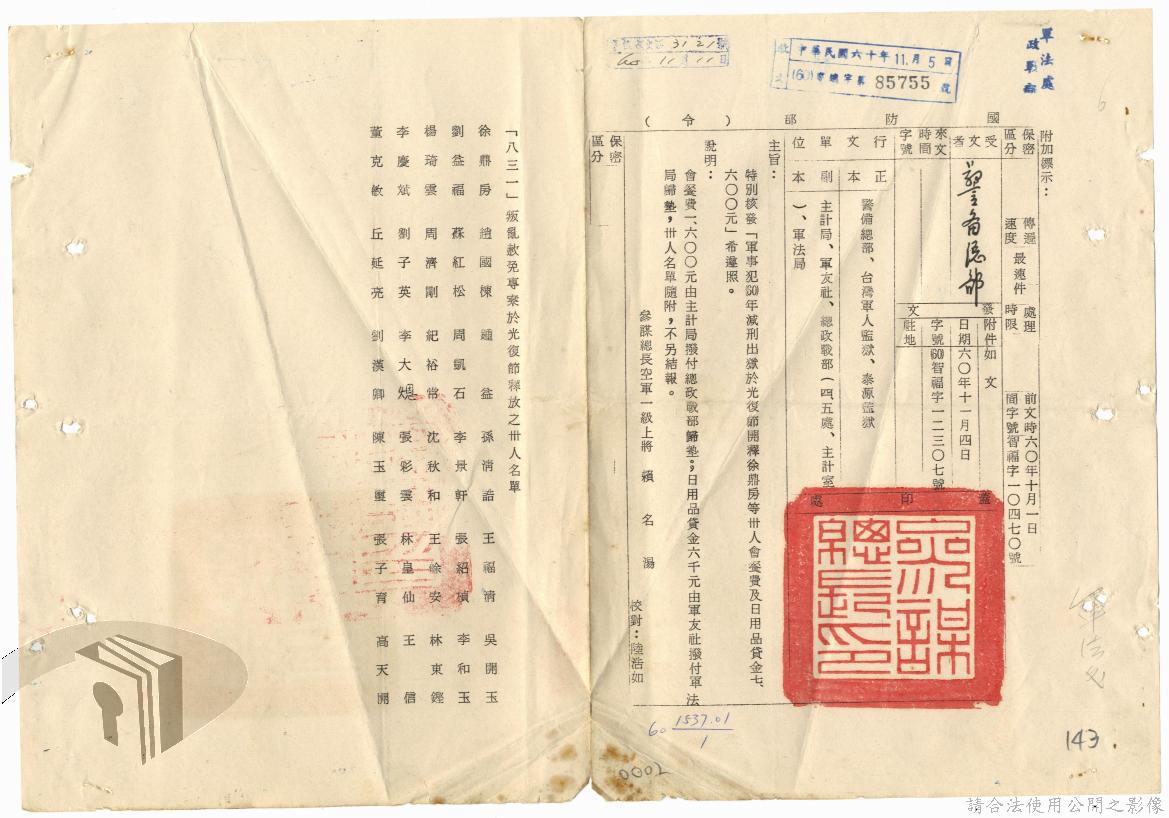 軍法處
政戰部
中華民國六十年11月5日
85755號
3121號
60 11月11日
國防部(令)
附加標示:
保密區分
傳遞速度 最速件
處理時限
前文時間字號 六〇年十月一日 智福字一〇四七〇號
受文者 警備總部
來文時間字號
發文
附件 如文
日期 六〇年十一月四日
字號 (60)智福字一二三〇七號
駐地
行文單位
正本 警備總部、台灣軍人監獄、泰源監獄
副本 主計局、軍友社、總政戰部(四、五處、主計室)、軍法局
蓋印處
參謀總長印
主旨:
特別核發「軍事犯(60)年減刑出獄於光復節開釋徐鼎房等卅人會餐費及日用品貸金七、
六〇〇元」希遵照。
說明:
會餐費一、六〇〇元由主計局撥付總政戰部歸墊;日用品貸金六千元由軍友社撥付軍法
局歸墊,卅人名單隨附,不另結報。
參謀總長空軍一級上將 賴名湯
校對:陸浩如
保密區分
「八三一」叛亂赦免專案於光復節釋放之卅人名單
徐鼎房 趙國棟 鍾益 孫清誥 王福清 吳開玉
劉益福 蘇紅松 周凱石 李景軒 張紹楨 李和玉
楊琦雲 周濟剛 紀裕常 沈秋和 王徐安 林東鏗
李慶斌 劉子英 李大 張彩雲 林皇仙 王信
董克敏 丘延亮 劉漢卿 陳玉璽 張子育 高天開
60 1537.01
1
0002
143
軍法
6
請合法使用公開之影像